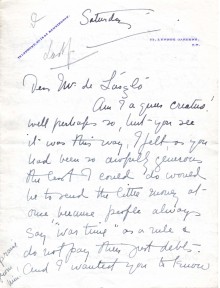 Saturday
Dear Mr de László
Am I a queer creature!
well perhaps so, but you see
it was this way, I felt as you
had been so awfully generous
the least I could do would
be to send the little money at
once because people always
say "was time" as a rule &
do not pay their just debts.
And I wanted you to know